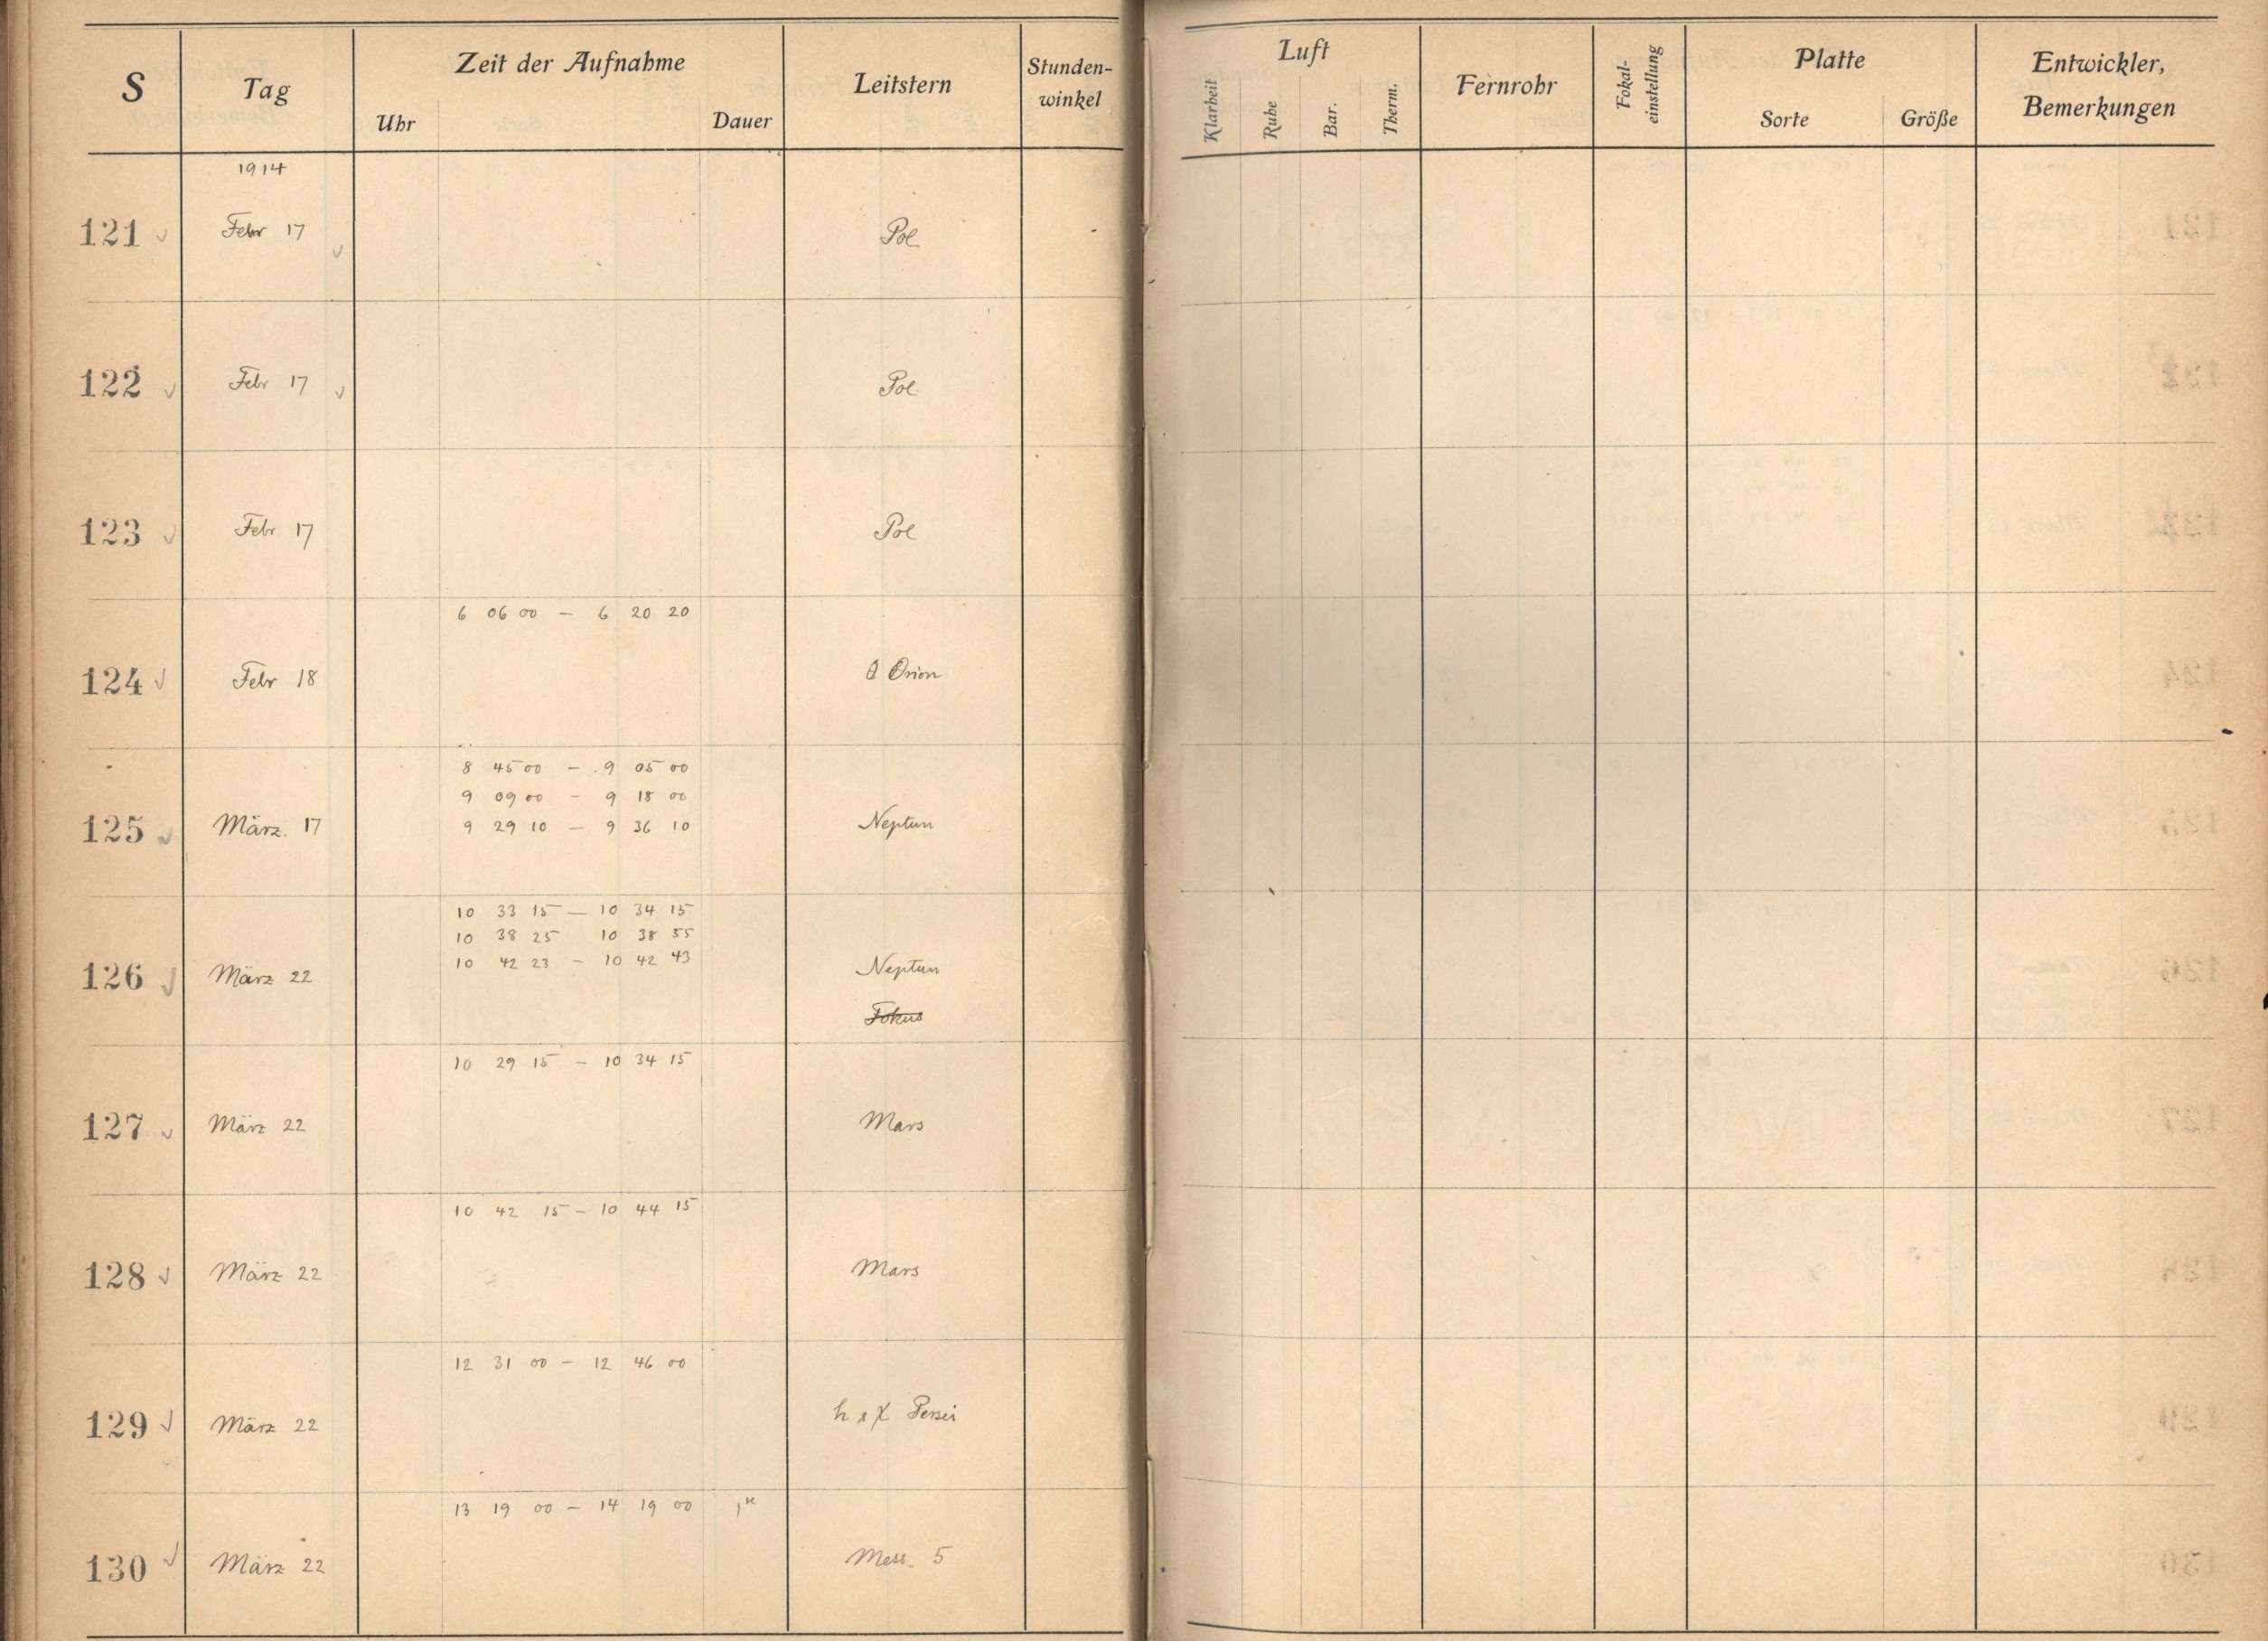 S Tag Zeit der Aufnahme Leitstern Stunden-
winkel
Uhr Dauer
Luft Fernrohr Fokal-
einstellung Platte Entwickler,
Bemerkungen
Klarheit Ruhe Bar. Therm. Sorte Größe
1914
121 Febr 17 Pol
122 Febr 17 Pol
123 Febr 17 Pol
6 06 00 – 6 20 20
124 Febr 18 θ Orion
8 45 00 – 9 05 00
9 09 00 – 9 18 00
9 29 10 – 9 36 10
125 März. 17 Neptun
10 33 15 – 10 34 15
10 38 25 10 38 55
10 42 23 – 10 42 43
126 März 22 Neptun
Fokus
10 29 15 – 10 34 15
127 März 22 Mars
10 42 15 – 10 44 15
128 März 22 Mars
12 31 00 – 12 46 00
129 März 22 h & χ Persei
13 19 00 – 14 19 00 1
130 März 22 Mess. 5